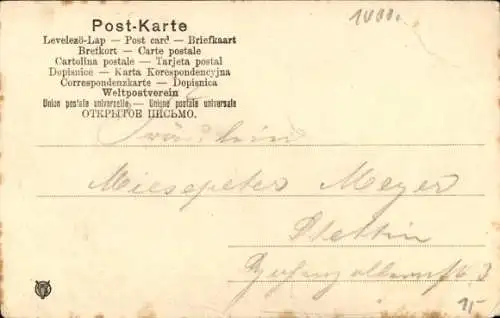 Post-Karte
Levelező-Lap — Post card — Briefkaart
Brefkort — Carte postale
Cartolina postale — Tarjeta postal
Dopisnice — Karta Korespondencyjna
Correspondenzkarte — Dopisnica
Weltpostverein
Union postale universelle — Unione postale universale
ОТКРЫТОЕ ПИСЬМО.
Fräulein
Miesepeter Meyer
Stettin
3
15